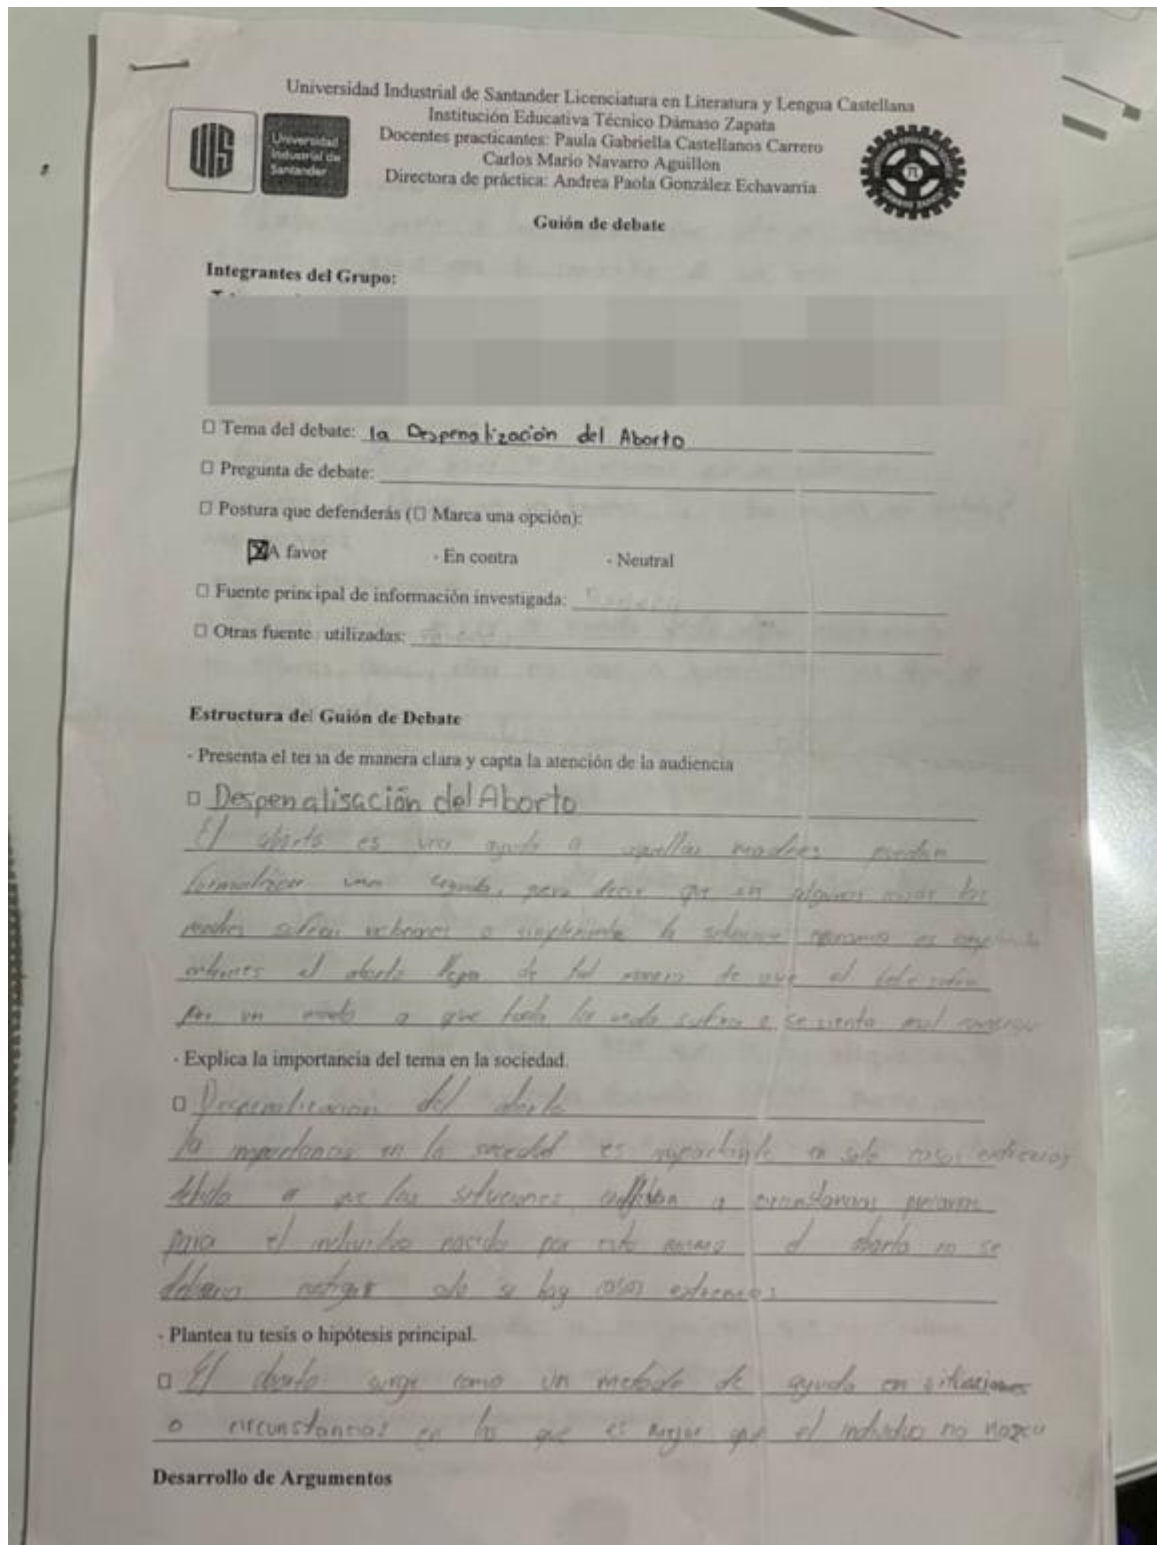 Universidad Industrial de Santander Licenciatura en Literatura y Lengua Castellana
Institución Educativa Técnico Dámaso Zapata
Docentes practicantes: Paula Gabriella Castellanos Carrero
Carlos Mario Navarro Aguillon
Directora de práctica: Andrea Paola González Echavarria
UIS
Universidad
Industrial de
Santander
Guión de debate
Integrantes del Grupo:
Tema del debate: la Despenalización del Aborto
Pregunta de debate:
Postura que defenderás (□ Marca una opción):
A favor - En contra - Neutral
Fuente principal de información investigada:
Otras fuente utilizadas:
Estructura del Guión de Debate
- Presenta el tema de manera clara y capta la atención de la audiencia
Despenalisación del Aborto
El aborto es una ayuda a aquellas madres puedan
decir que en algunos casos las
madres sufren o simplemente la
entonces el aborto de tal manera de que el bebe sufra
por un a que toda la vida sufra o se sienta mal
- Explica la importancia del tema en la sociedad.
Despenalización del aborto
la importancia en la sociedad es importante en solo casos extremos
debido a que las soluciones a circunstancias
para el individuo nacido por esto mismo el aborto no se
solo si hay casos extremos
- Plantea tu tesis o hipótesis principal.
El aborto surge como un metodo de ayuda en situaciones
o circunstancias en las que es mejor que el individuo no nazca
Desarrollo de Argumentos